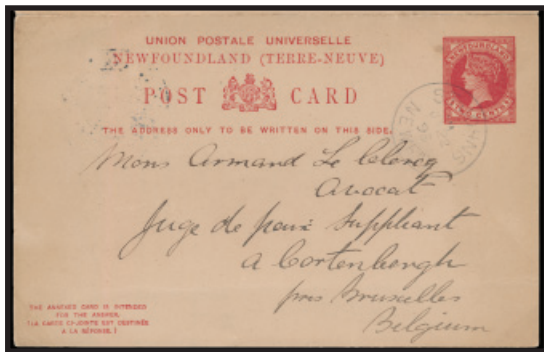 UNION POSTALE UNIVERSELLE
NEWFOUNDLAND (TERRE-NEUVE)
POST CARD
THE ADDRESS ONLY TO BE WRITTEN ON THIS SIDE.
NEWFOUNDLAND
TWO CENTS
Mons Armand Le Clercq
Avocat
Juge de paix Suppleant
a Cortenbergh
près Bruxelles
Belgium
THE ANNEXED CARD IS INTENDED
FOR THE ANSWER.
(LA CARTE CI-JOINTE EST DESTINÉE
A LA RÉPONSE.)